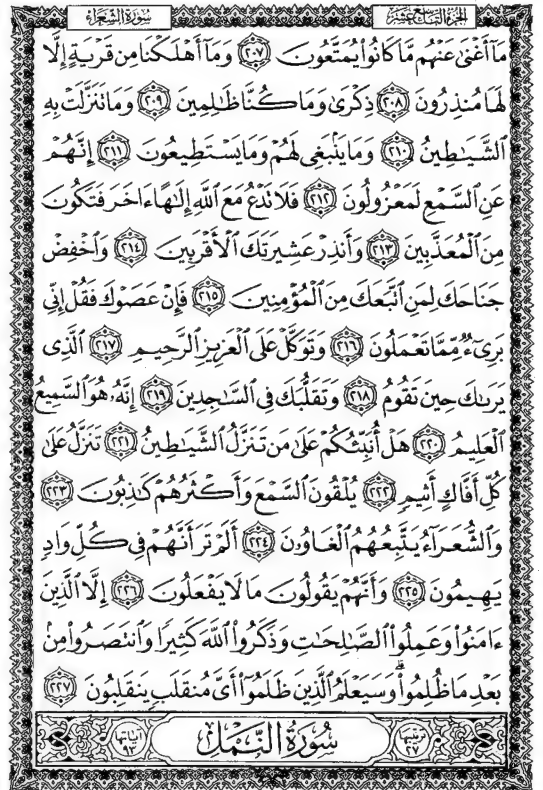 الجزء التاسع عشر
سورة الشعراء
مَآ أَغْنَىٰ عَنْهُم مَّا كَانُوا۟ يُمَتَّعُونَ ٢٠٧ وَمَآ أَهْلَكْنَا مِن قَرْيَةٍ إِلَّا
لَهَا مُنذِرُونَ ٢٠٨ ذِكْرَىٰ وَمَا كُنَّا ظَٰلِمِينَ ٢٠٩ وَمَا تَنَزَّلَتْ بِهِ
ٱلشَّيَٰطِينُ ٢١٠ وَمَا يَنۢبَغِى لَهُمْ وَمَا يَسْتَطِيعُونَ ٢١١ إِنَّهُمْ
عَنِ ٱلسَّمْعِ لَمَعْزُولُونَ ٢١٢ فَلَا تَدْعُ مَعَ ٱللَّهِ إِلَٰهًا ءَاخَرَ فَتَكُونَ
مِنَ ٱلْمُعَذَّبِينَ ٢١٣ وَأَنذِرْ عَشِيرَتَكَ ٱلْأَقْرَبِينَ ٢١٤ وَٱخْفِضْ
جَنَاحَكَ لِمَنِ ٱتَّبَعَكَ مِنَ ٱلْمُؤْمِنِينَ ٢١٥ فَإِنْ عَصَوْكَ فَقُلْ إِنِّى
بَرِىٓءٌ مِّمَّا تَعْمَلُونَ ٢١٦ وَتَوَكَّلْ عَلَى ٱلْعَزِيزِ ٱلرَّحِيمِ ٢١٧ ٱلَّذِى
يَرَىٰكَ حِينَ تَقُومُ ٢١٨ وَتَقَلُّبَكَ فِى ٱلسَّٰجِدِينَ ٢١٩ إِنَّهُۥ هُوَ ٱلسَّمِيعُ
ٱلْعَلِيمُ ٢٢٠ هَلْ أُنَبِّئُكُمْ عَلَىٰ مَن تَنَزَّلُ ٱلشَّيَٰطِينُ ٢٢١ تَنَزَّلُ عَلَىٰ
كُلِّ أَفَّاكٍ أَثِيمٍ ٢٢٢ يُلْقُونَ ٱلسَّمْعَ وَأَكْثَرُهُمْ كَٰذِبُونَ ٢٢٣
وَٱلشُّعَرَآءُ يَتَّبِعُهُمُ ٱلْغَاوُۥنَ ٢٢٤ أَلَمْ تَرَ أَنَّهُمْ فِى كُلِّ وَادٍ
يَهِيمُونَ ٢٢٥ وَأَنَّهُمْ يَقُولُونَ مَا لَا يَفْعَلُونَ ٢٢٦ إِلَّا ٱلَّذِينَ
ءَامَنُوا۟ وَعَمِلُوا۟ ٱلصَّٰلِحَٰتِ وَذَكَرُوا۟ ٱللَّهَ كَثِيرًا وَٱنتَصَرُوا۟ مِنۢ
بَعْدِ مَا ظُلِمُوا۟ ۗ وَسَيَعْلَمُ ٱلَّذِينَ ظَلَمُوٓا۟ أَىَّ مُنقَلَبٍ يَنقَلِبُونَ ٢٢٧
ترتيبها ٢٧ سُورَةُ النَّمْلِ آياتها ٩٣